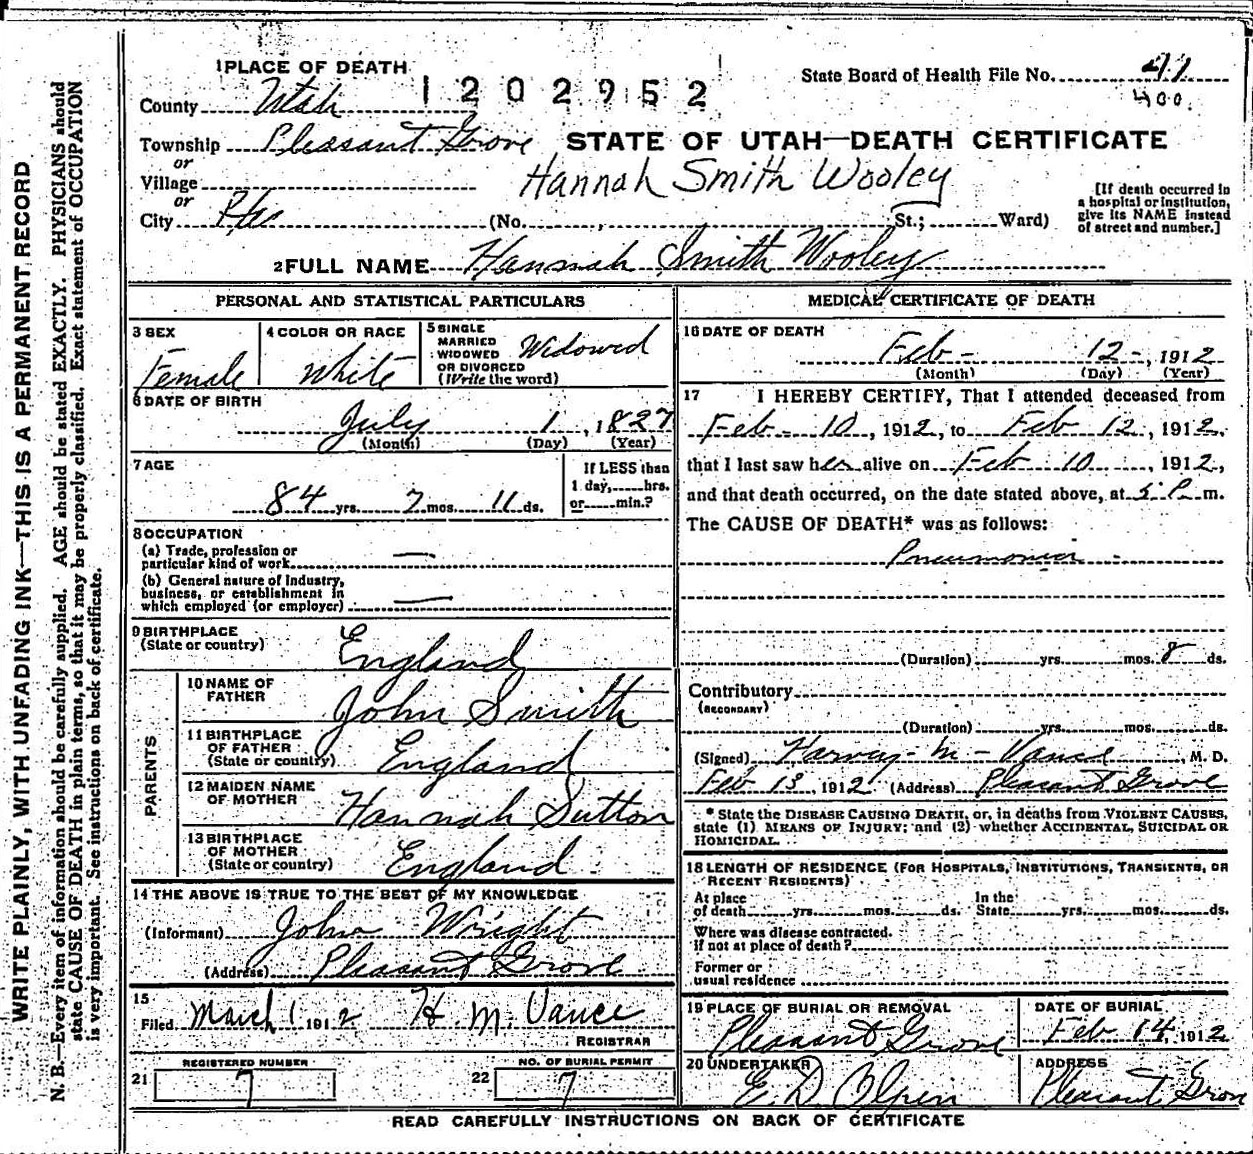 WRITE PLAINLY, WITH UNFADING INK—THIS IS A PERMANENT RECORD
N. B.—Every item of information should be carefully supplied. AGE should be stated EXACTLY. PHYSICIANS should
state CAUSE OF DEATH in plain terms, so that it may be properly classified. Exact statement of OCCUPATION
is very important. See instructions on back of certificate.
1 PLACE OF DEATH
1202952
State Board of Health File No. 41
400
County Utah
Township Pleasant Grove
STATE OF UTAH—DEATH CERTIFICATE
or
Village
Hannah Smith Wooley
or
City (No. St.; Ward)
[If death occurred in
a hospital or institution,
give its NAME instead
of street and number.]
2 FULL NAME Hannah Smith Wooley
PERSONAL AND STATISTICAL PARTICULARS
3 SEX
Female
4 COLOR OR RACE
White
5 SINGLE
MARRIED
WIDOWED
OR DIVORCED
(Write the word)
Widowed
6 DATE OF BIRTH
July 1, 1827
(Month) (Day) (Year)
7 AGE
84 yrs. 7 mos. 11 ds.
If LESS than
1 day, hrs.
or min.?
8 OCCUPATION
(a) Trade, profession or
particular kind of work —
(b) General nature of Industry,
business, or establishment in
which employed (or employer) —
9 BIRTHPLACE
(State or country) England
PARENTS
10 NAME OF
FATHER John Smith
11 BIRTHPLACE
OF FATHER
(State or country) England
12 MAIDEN NAME
OF MOTHER Hannah Sutton
13 BIRTHPLACE
OF MOTHER
(State or country) England
14 THE ABOVE IS TRUE TO THE BEST OF MY KNOWLEDGE
(Informant) John Wright
(Address) Pleasant Grove
15
Filed March 1 1912 H M. Vance
REGISTRAR
REGISTERED NUMBER
21 7
NO. OF BURIAL PERMIT
22 7
MEDICAL CERTIFICATE OF DEATH
16 DATE OF DEATH
Feb - 12 -, 1912
(Month) (Day) (Year)
17 I HEREBY CERTIFY, That I attended deceased from
Feb - 10, 1912, to Feb 12, 1912,
that I last saw her alive on Feb 10, 1912,
and that death occurred, on the date stated above, at 5 P. m.
The CAUSE OF DEATH* was as follows:
Pneumonia
(Duration) yrs. mos. 8 ds.
Contributory
(SECONDARY)
(Duration) yrs. mos. ds.
(Signed) Harvey - M - Vance, M. D.
Feb 13, 1912 (Address) Pleasant Grove
* State the DISEASE CAUSING DEATH, or, in deaths from VIOLENT CAUSES,
state (1) MEANS OF INJURY; and (2) whether ACCIDENTAL, SUICIDAL OR
HOMICIDAL.
18 LENGTH OF RESIDENCE (FOR HOSPITALS, INSTITUTIONS, TRANSIENTS, OR
RECENT RESIDENTS)
At place
of death yrs. mos. ds.
In the
State yrs. mos. ds.
Where was disease contracted.
if not at place of death?
Former or
usual residence
19 PLACE OF BURIAL OR REMOVAL
Pleasant Grove
DATE OF BURIAL
Feb 14, 1912
20 UNDERTAKER
E. D Olpin
ADDRESS
Pleasant Grove
READ CAREFULLY INSTRUCTIONS ON BACK OF CERTIFICATE